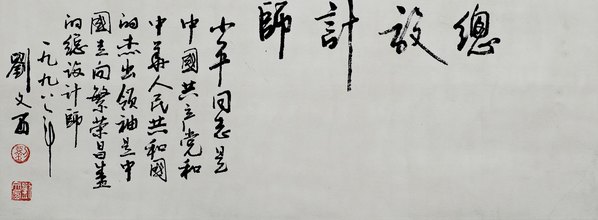 總設計師
小平同志是
中國共产党和
中華人民共和國
的杰出领袖是中
國走向繁荣昌盛
的總設计師
一九九八年
劉文西